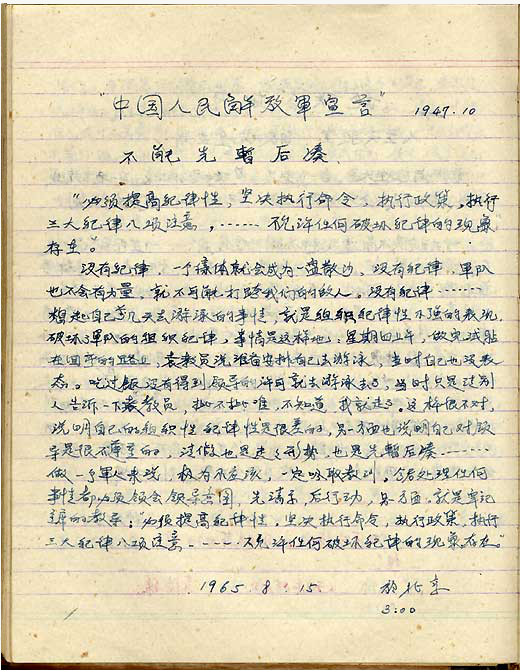 "中国人民解放軍宣言" 1947.10
不能先暫后凑
"必须提高纪律性，坚决执行命令，执行政策，执行
三大纪律八项注意，……不允许任何破坏纪律的现象
存在。"
没有纪律，一个集体就会成为一盘散沙，没有纪律，軍队
也不会有力量，就不可能打败我们的敌人。没有纪律……
想起自己前几天去游泳的事情，就是组织纪律性不强的表现，
破坏了軍队的组织纪律，事情是这样地，星期四上午，做完试验
在回来的路上，袁教员说准备安排自己去游泳，当时自己也没表
态。吃过饭没有得到领导的许可就去游泳去了，当时只是让别
人告诉一下袁教员，批不批准，不知道，我就走了。这样很不对，
说明自己的组织性纪律性是很差的，另一方面也说明自己对领
导是很不尊重的，请假也是走了形势，也是先暫后凑……
做一个軍人来说，极为不应该，一定吸取教训。今后处理任何
事情都必须领会领导意图，先请示，后行动，另一方面，就是牢记
主席的教导："必须提高纪律性，坚决执行命令，执行政策，执行
三大纪律八项注意……不允许任何破坏纪律的现象存在。"
1965 8. 15
3:00